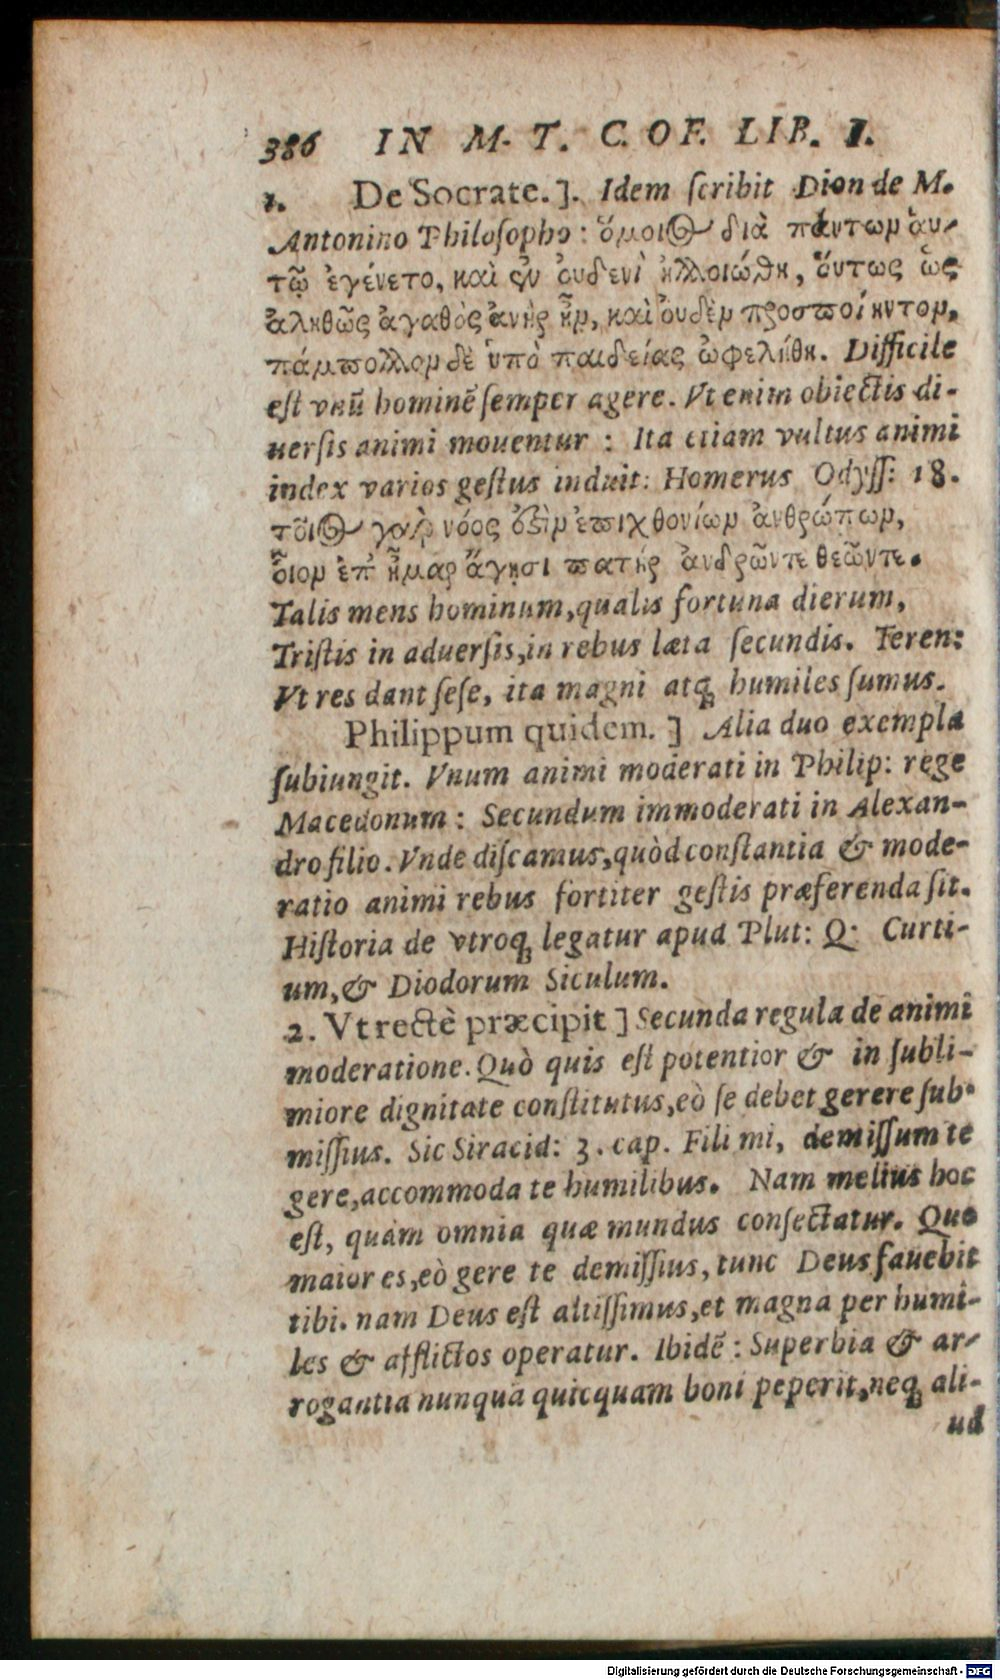 386 IN M. T. C. OF. LIB. I.
1. De Socrate.]. Idem ſcribit Dion de M.
Antonino Philoſopho: ὅμοιος διὰ πάντων ἀυ-
τῷ ἐγένετο, καὶ ἐν ὀυδενὶ ἠλλοιώθη, ὅυτως ὡς
ἀληθῶς ἀγαθὸς ἀνὴρ ἦν, καὶ ὀυδὲν προσποίητον,
πάμπολλον δὲ ὑπὸ παιδείας ὠφελήθη. Difficile
eſt vnũ hominẽ ſemper agere. Vt enim obiectis di-
uerſis animi mouentur : Ita etiam vultus animi
index varios geſtus induit: Homerus Odyſſ: 18.
τοῖος γὰρ νόος ἐστὶν ἐπιχθονίων ἀνθρώπων,
ὅιον ἐπ' ἦμαρ ἄγησι πατὴρ ἀνδρῶντε θεῶντε.
Talis mens hominum,qualis fortuna dierum,
Triſtis in aduerſis,in rebus læta ſecundis. Teren:
Vt res dant ſeſe, ita magni atq; humiles ſumus.
Philippum quidem. ] Alia duo exempla
ſubiungit. Vnum animi moderati in Philip: rege
Macedonum : Secundum immoderati in Alexan-
dro filio. Vnde diſcamus,quòd conſtantia & mode-
ratio animi rebus fortiter geſtis præferenda ſit.
Hiſtoria de vtroq; legatur apud Plut: Q: Curti-
um,& Diodorum Siculum.
2. Vt rectè præcipit ] Secunda regula de animi
moderatione. Quò quis eſt potentior & in ſubli-
miore dignitate conſtitutus,eò ſe debet gerere ſub-
miſſius. Sic Siracid: 3. cap. Fili mi, demiſſum te
gere,accommoda te humilibus. Nam melius hoc
eſt, quàm omnia quæ mundus conſectatur. Quo
maior es,eò gere te demiſſius, tunc Deus fauebit
tibi. nam Deus eſt altiſſimus,et magna per humi-
les & afflictos operatur. Ibidẽ : Superbia & ar-
rogantia nunquã quicquam boni peperit,neq; ali-
ud
Digitalisierung gefördert durch die Deutsche Forschungsgemeinschaft - DFG